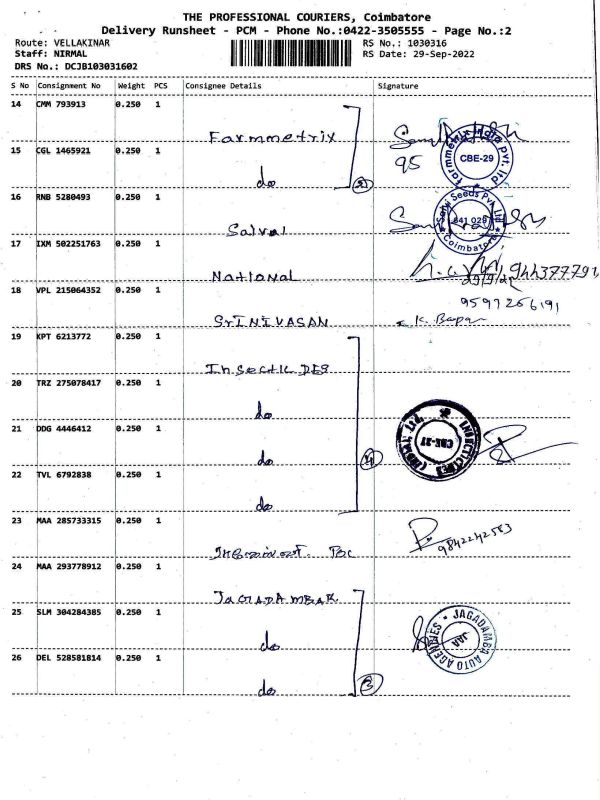 THE PROFESSIONAL COURIERS, Coimbatore
Delivery Runsheet - PCM - Phone No.:0422-3505555 - Page No.:2
Route: VELLAKINAR RS No.: 1030316
Staff: NIRMAL RS Date: 29-Sep-2022
DRS No.: DCJB103031602
S No Consignment No Weight PCS Consignee Details Signature
14 CMM 793913 0.250 1
Farmmetrix
15 CGL 1465921 0.250 1
95
Farmmetrix India Pvt. Ltd
CBE-29
do 2
16 RNB 5280493 0.250 1
Seeds Pvt Ltd
641 029
Coimbatore
17 IXM 502251763 0.250 1
National
18 VPL 215064352 0.250 1
9597256191
SrINIVASAN K.
19 KPT 6213772 0.250 1
20 TRZ 275078417 0.250 1
do
21 DDG 4446412 0.250 1
CBE-
do 4
22 TVL 6792838 0.250 1
do
23 MAA 285733315 0.250 1
9842242583
24 MAA 293778912 0.250 1
JAGADAMBAR
25 SLM 304284385 0.250 1
JAGADAMBA
AUTO AGENCIES
JAA
do
26 DEL 528581814 0.250 1
do 3